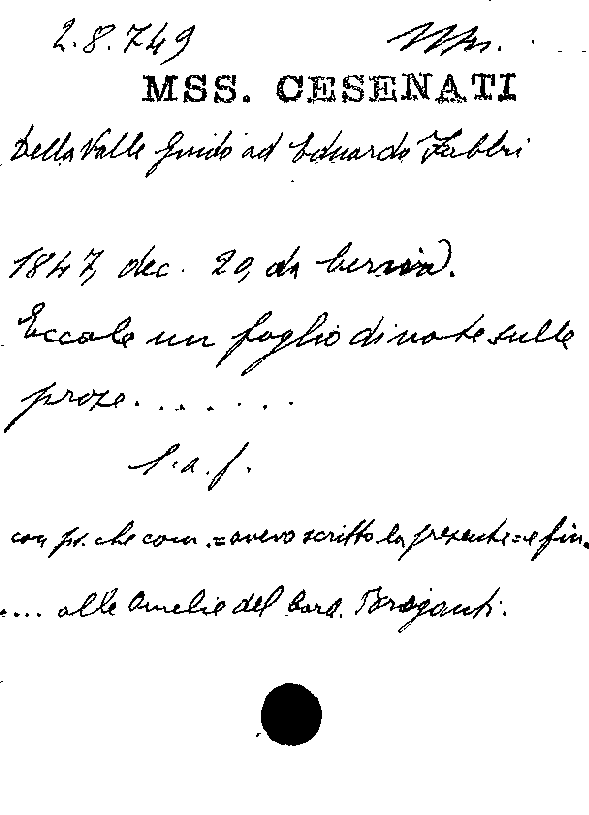 2.8.749
MSS. CESENATI
Della Valle Guido ad Eduardo Fabbri
1847, dec. 20, da
Eccole un foglio di note sulle
prose.......
l.a.f.
con ps. che com. = avevo scritto la presente = e fin.
.... alle Amelie del Card. Braganti.